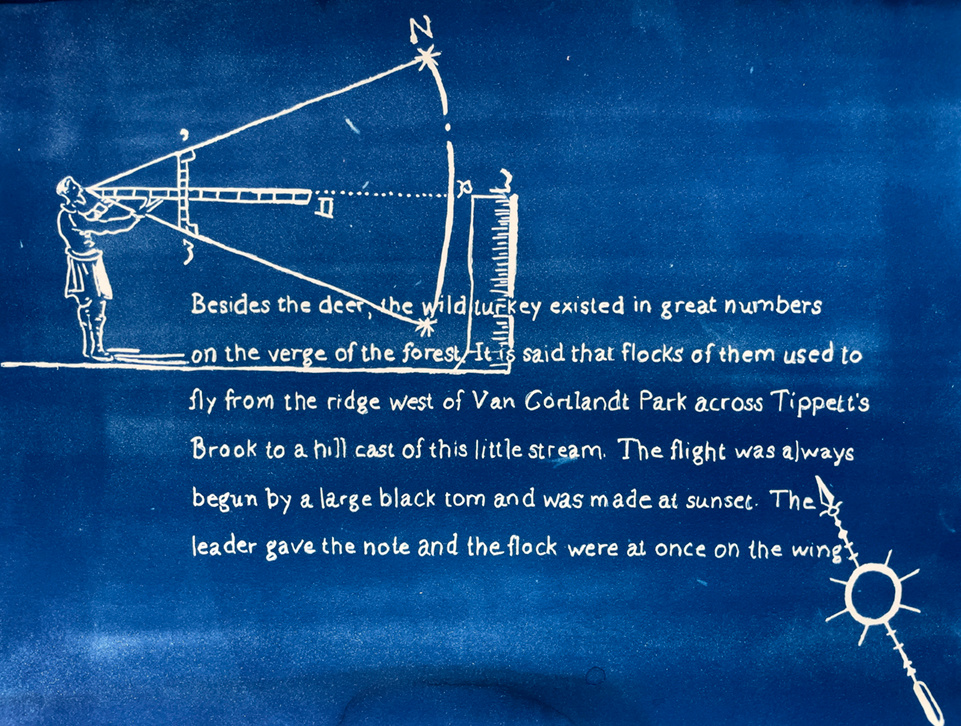 Besides the deer, the wild turkey existed in great numbers
on the verge of the forest. It is said that flocks of them used to
fly from the ridge west of Van Cortlandt Park across Tippett's
Brook to a hill cast of this little stream. The flight was always
begun by a large black tom and was made at sunset. The
leader gave the note and the flock were at once on the wing.